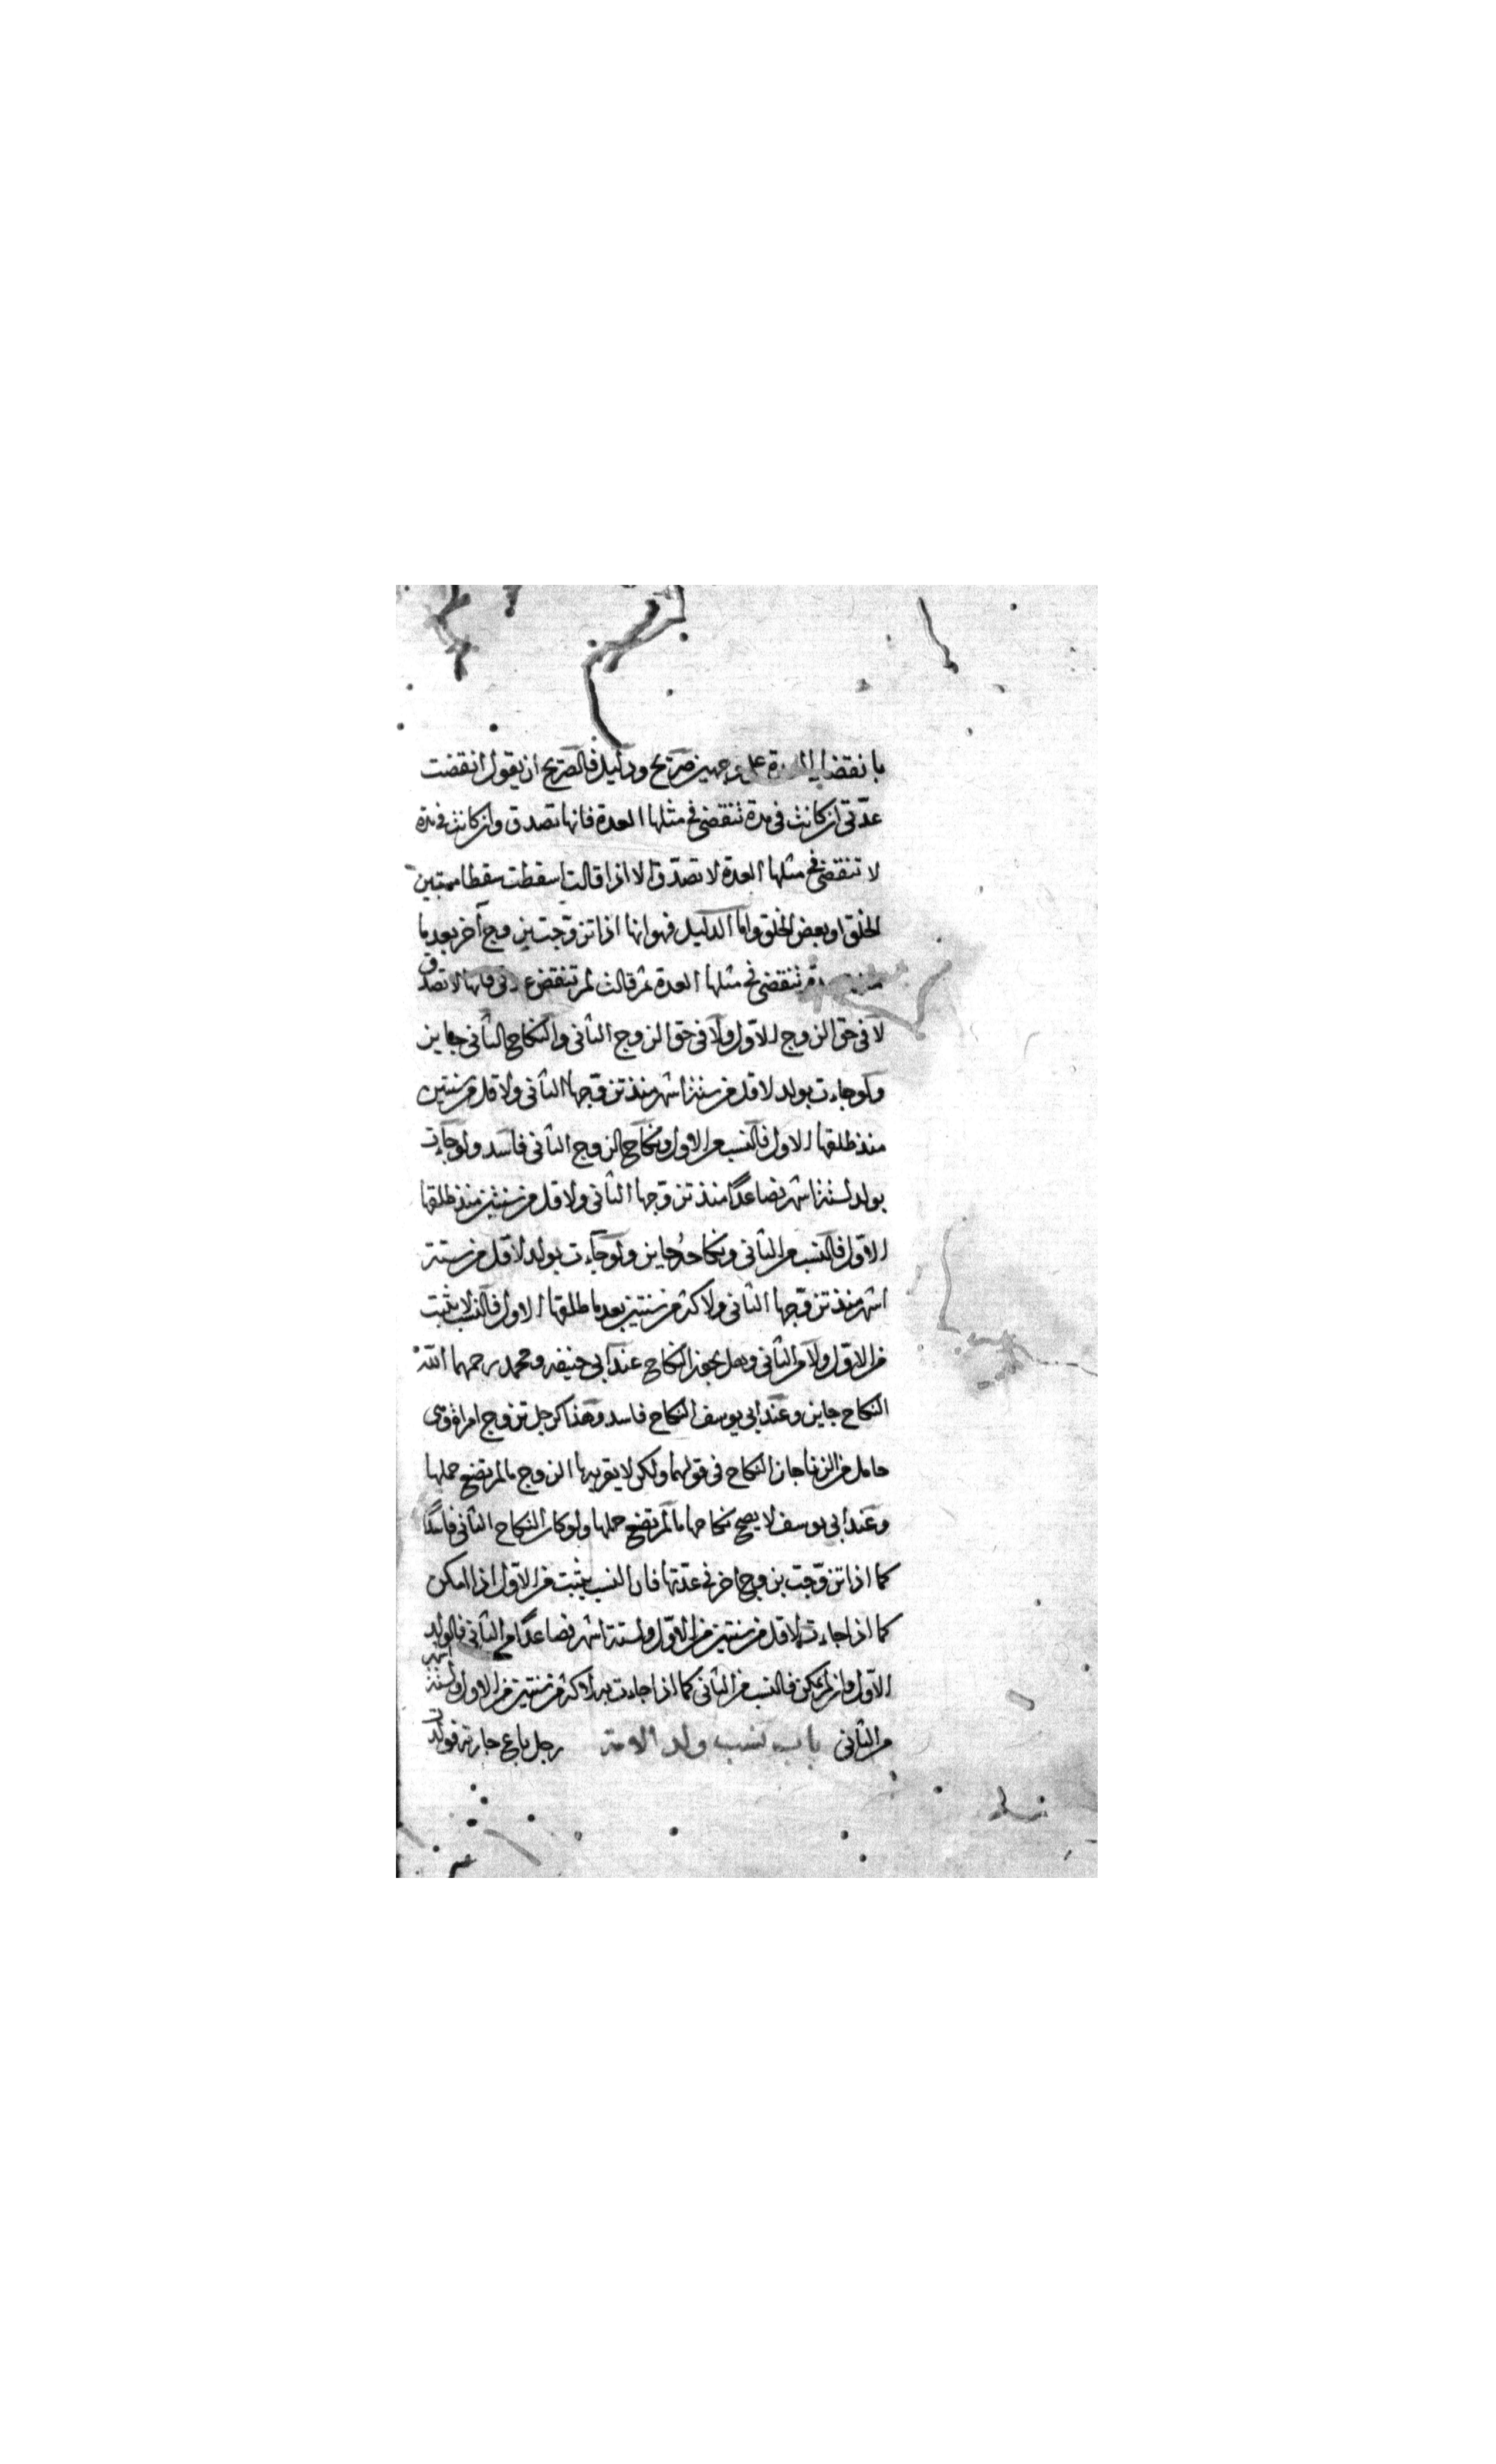 بانقضاء العدة على وجهين صريح ودليل فالصريح ان يقول انقضت
عدّتى ان كانت فى مدة تنقضى فى مثلها العدة فانها تصدق وان كانت فى مدة
لا تنقضى فى مثلها العدة لا تصدّق الا اذا قالت اسقطت سقطا مستبين
الخلق او بعض الخلق واما الدليل فهو انها اذا تزوّجت بزوج آخر بعد ما
تنقضى فى مثلها العدة ثم قالت لم تنقض عدتى فانها لا تصدق
لا فى حق الزوج الاوّل ولا فى حق الزوج الثانى والنكاح الثانى جايز
ولو جاءت بولد لاقل من ستة اشهر منذ تزوّجها الثانى ولاقل من سنتين
منذ طلقها الاول فالنسب من الاول ونكاح الزوج الثانى فاسد ولو جاءت
بولد لستة اشهر فصاعدًا منذ تزوّجها الثانى ولاقل من سنتين منذ طلقها
الاوّل فالنسب من الثانى ونكاحهُ جايز ولو جآءت بولد لاقل من ستة
اشهر منذ تزوّجها الثانى ولاكثر من سنتين بعد ما طلقها الاول فالنسب لا يثبت
من الاوّل ولا من الثانى وهل يجوز النكاح عند ابى حنيفه ومحمد رحمهما اللّه
النكاح جايز وعند ابى يوسف النكاح فاسد وهذا كرجل تزوج امراة وهى
حامل من الزنا جاز النكاح فى قولهما ولكن لا يقربها الزوج ما لم تضع حملها
وعند ابى يوسف لا يصح نكاحها ما لم تضع حملها ولو كان النكاح الثانى فاسدًا
كما اذا تزوّجت بزوج اخر فى عدّتها فان النسب يثبت من الاوّل اذا امكن
كما اذا جاءت لاقل من سنتين من الاوّل ولستة اشهر فصاعدًا من الثانى فالولد
الاوّل وان لم يمكن فالنسب من الثانى كما اذا جاءت به لاكثر من سنتين من الاول ولستة اشهر
من الثانى باب نسب ولد الامة رجل باع جارية فولدت